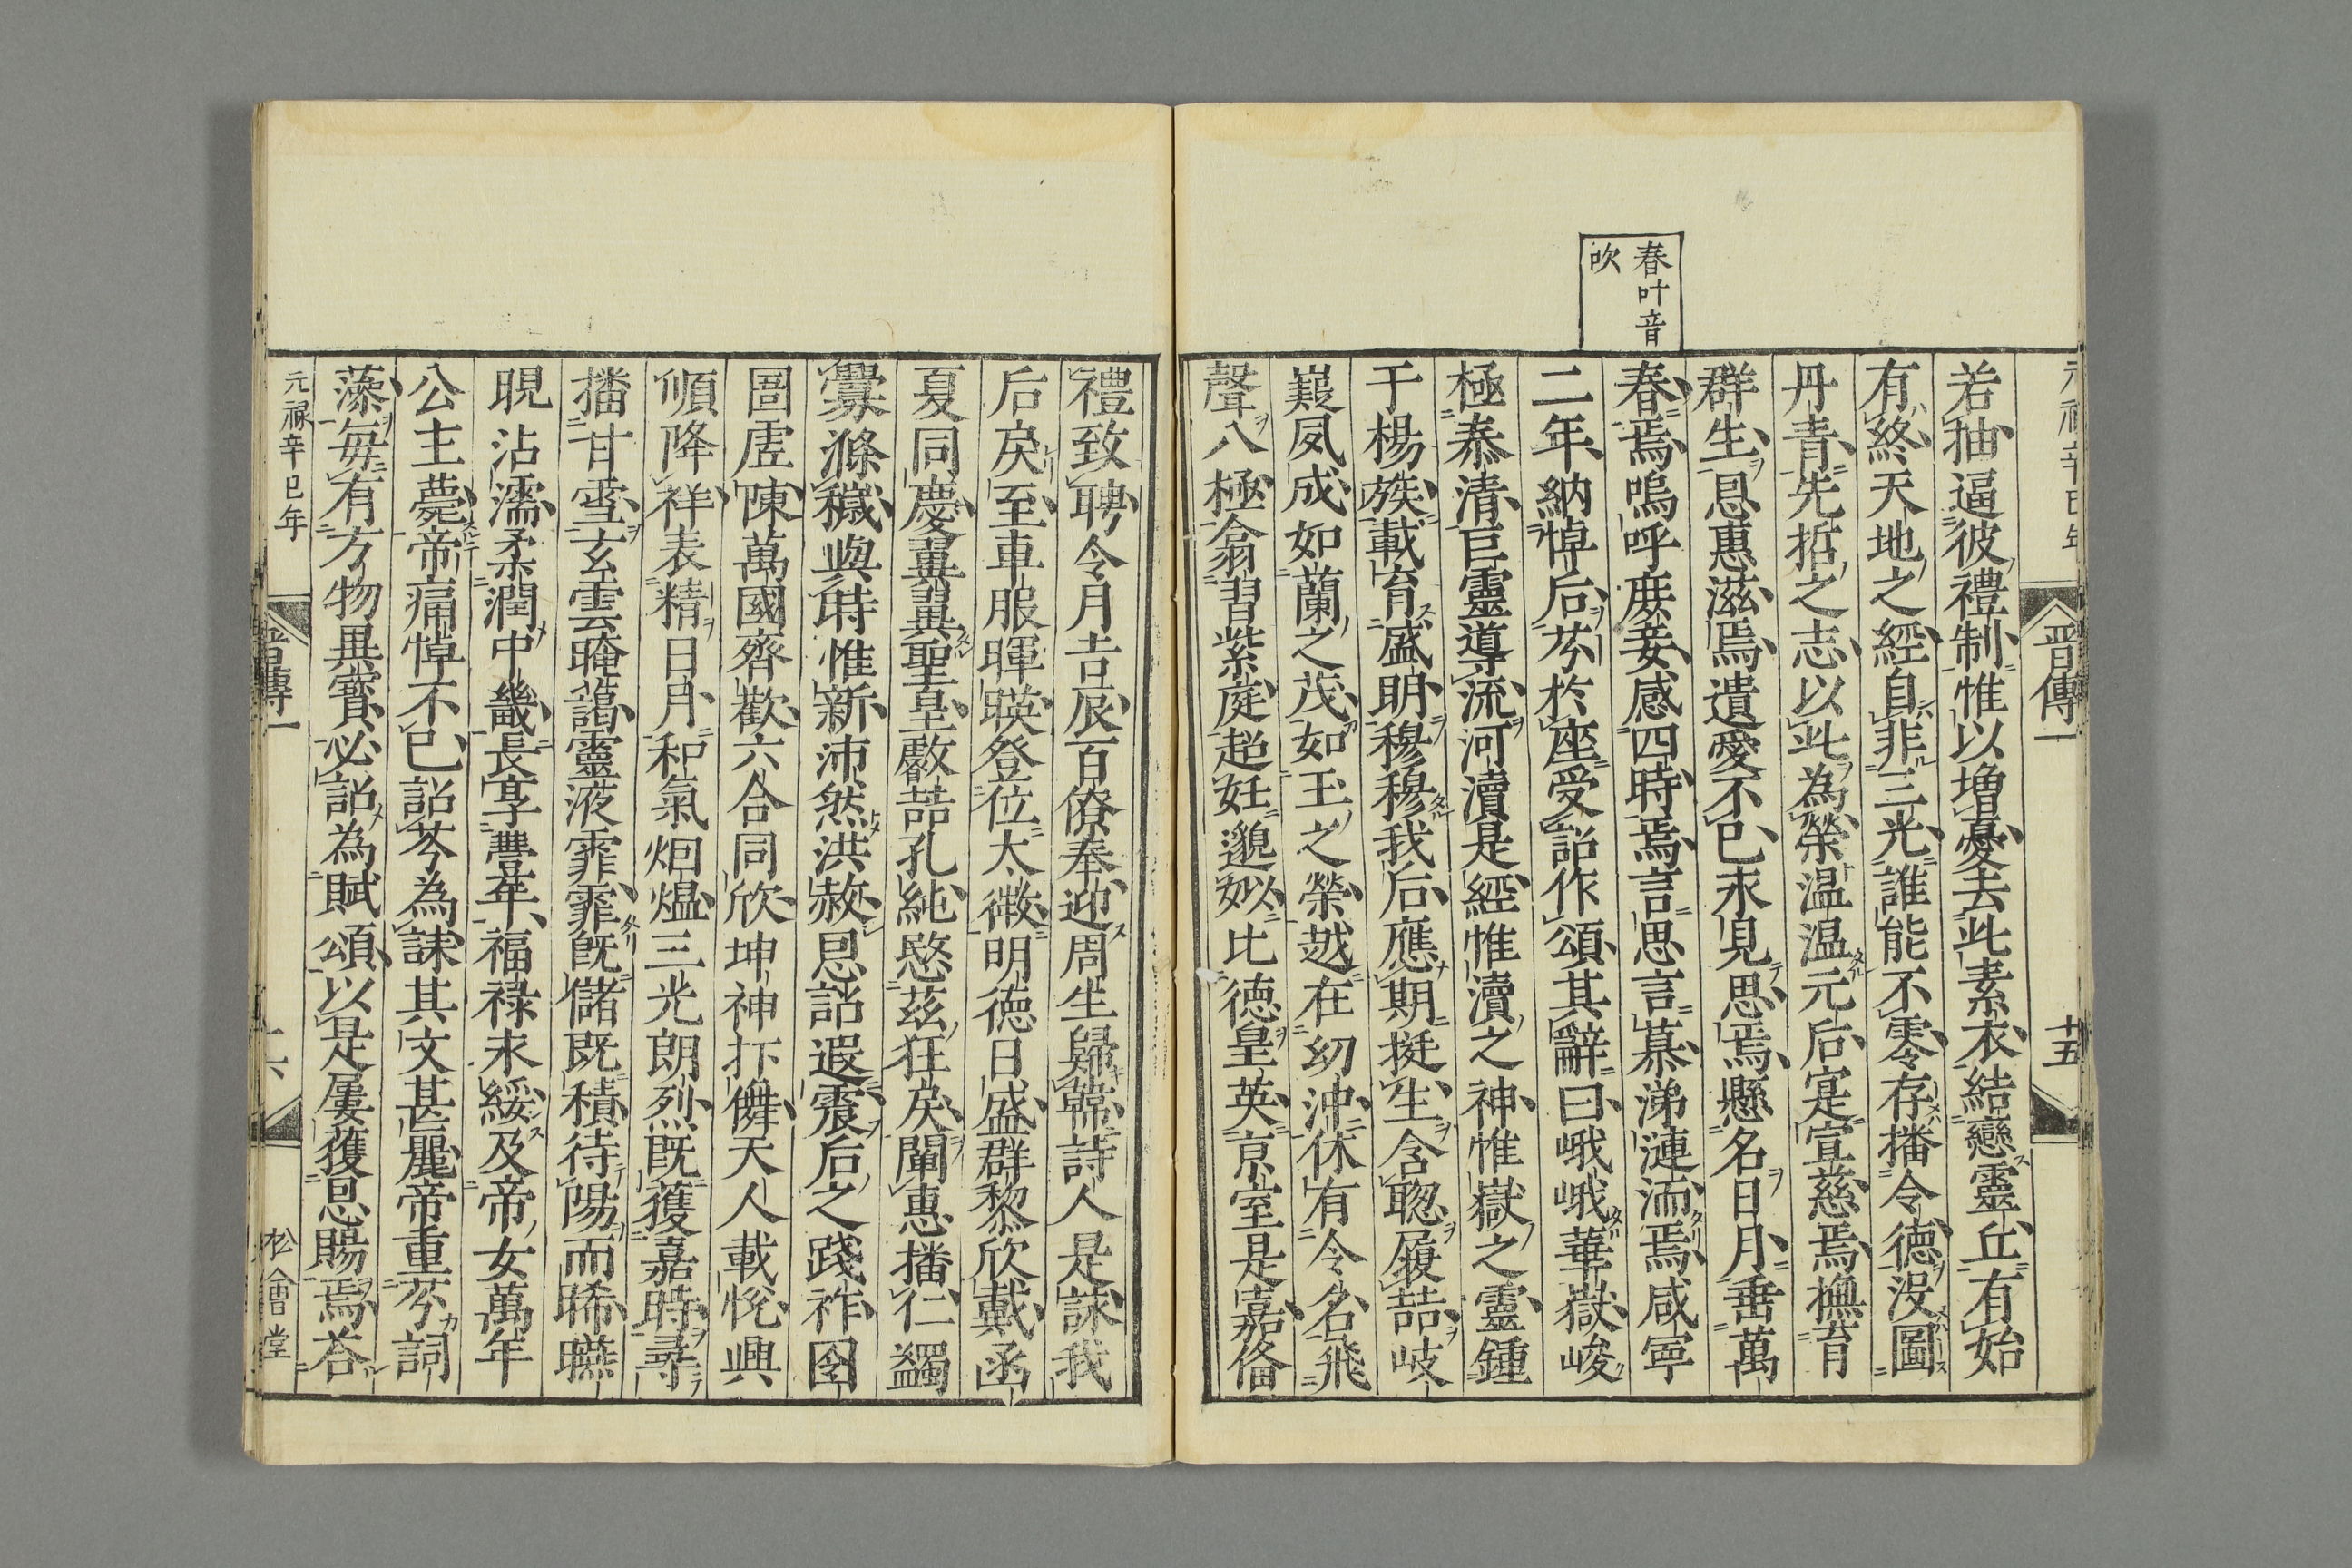 元祿辛巳年
晋傳一
十五
春叶音
吹
若抽逼彼禮制惟以增憂去此素衣結戀靈丘有始
有終天地之經自非三光誰能不零存播令德没圖
丹青先哲之志以此為榮温温元后寔宣慈焉撫育
群生恩惠滋焉遺愛不已永見思焉懸名日月垂萬
春焉嗚呼庶妾感四時焉言思言慕涕漣洏焉咸寧
二年納悼后芬於座受詔作頌其辭曰峨峨華嶽峻
極泰清巨靈導流河瀆是經惟瀆之神惟嶽之靈鍾
于楊族載育盛明穆穆我后應期挺生含聡履喆岐
嶷夙成如蘭之茂如玉之榮越在幼沖休有令名飛
聲八極翕習紫庭超妊邈姒比德皇英京室是嘉俻
禮致聘令月吉辰百僚奉迎周生歸韓詩人是詠我
后戾至車服暉暎登位太微明德日盛群黎欣戴函
夏同慶翼翼聖皇叡喆孔純愍茲狂戾闡惠播仁蠲
釁滌穢與時惟新沛然洪赦恩詔遐震后之踐祚囹
圄虛陳萬國齊歡六合同欣坤神抃儛天人載悅興
順降祥表精日月和氣烟熅三光朗烈既獲嘉時尋
播甘雪玄雲晻藹靈液霏霏既儲既積待陽而晞㬫
晛沾濡柔潤中畿長享豊年福祿永綏及帝女萬年
公主薨帝痛悼不已詔芬為誄其文甚麗帝重芬詞
藻每有方物異寶必詔為賦頌以是屢獲恩賜焉荅
元禄辛巳年
晋傳一
十六
松會堂